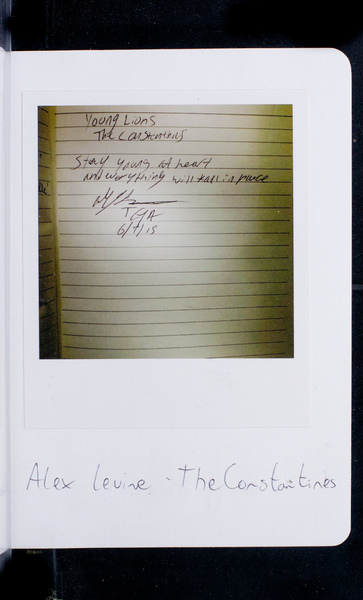 Young Lions
The Constantines
Stay young at heart
and everything will fall in place
TGA
6/7/15
Alex Levine - The Constantines